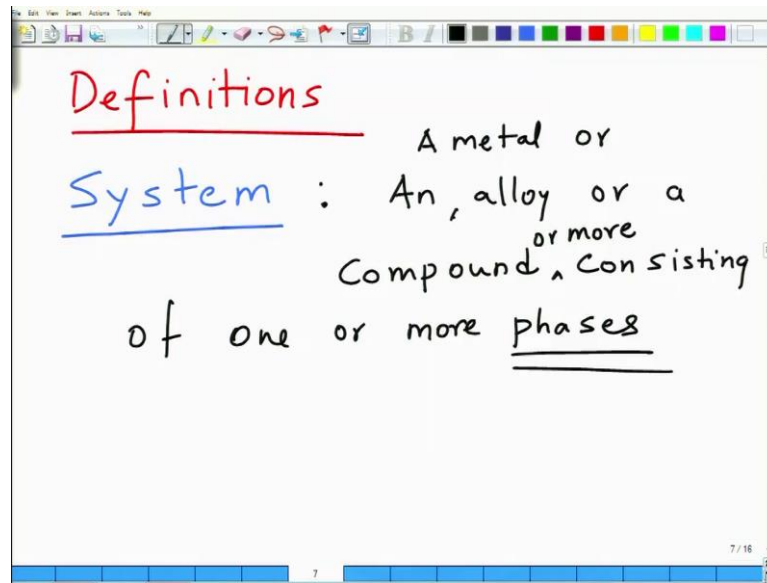 File Edit View Insert Actions Tools Help
B I
Definitions
A metal or
System : An, alloy or a
or more
Compound ^ Consisting
of one or more phases
7 / 16
7